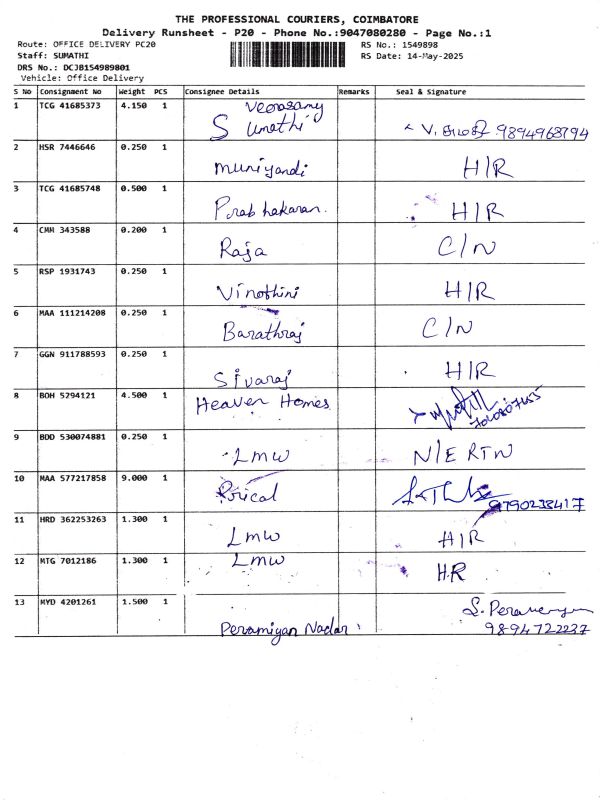 THE PROFESSIONAL COURIERS, COIMBATORE
Delivery Runsheet - P20 - Phone No.:9047080280 - Page No.:1
Route: OFFICE DELIVERY PC20 RS No.: 1549898
Staff: SUMATHI RS Date: 14-May-2025
DRS No.: DCJB154989801
Vehicle: Office Delivery
S No Consignment No Weight PCS Consignee Details Remarks Seal & Signature
1 TCG 41685373 4.150 1 Veerasamy
S Umathi V. 9894968794
2 HSR 7446646 0.250 1 Muniyandi H/R
3 TCG 41685748 0.500 1 Prabhakaran. H/R
4 CMM 343588 0.200 1 Raja C/N
5 RSP 1931743 0.250 1 Vinothini H/R
6 MAA 111214208 0.250 1 Barathraj C/N
7 GGN 911788593 0.250 1 Sivaraj H/R
8 BOH 5294121 4.500 1 Heaven Homes
9 BDD 530074881 0.250 1 LMW N/E RTN
10 MAA 577217858 9.000 1 9790233417
11 HRD 362253263 1.300 1 LMW H/R
12 MTG 7012186 1.300 1 LMW H.R
13 MYD 4201261 1.500 1 Peramiyan Nadar 9894722237